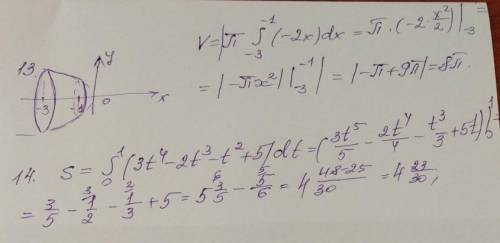 V=|π ∫₋₃⁻¹ (-2x)dx = π·(-2·x²/2)|₋₃⁻¹ =
13.
y
-3 -1 0 x
= |-πx²| |₋₃⁻¹ = |-π+9π| = 8π.
14. S = ∫₀¹ (3t⁴-2t³-t²+5)dt = (3t⁵/5 - 2t⁴/4 - t³/3 + 5t)|₀¹ =
= 3/5 - 1/2 - 1/3 + 5 = 5 3/5 - 5/6 = 4 (48-25)/30 = 4 23/30,